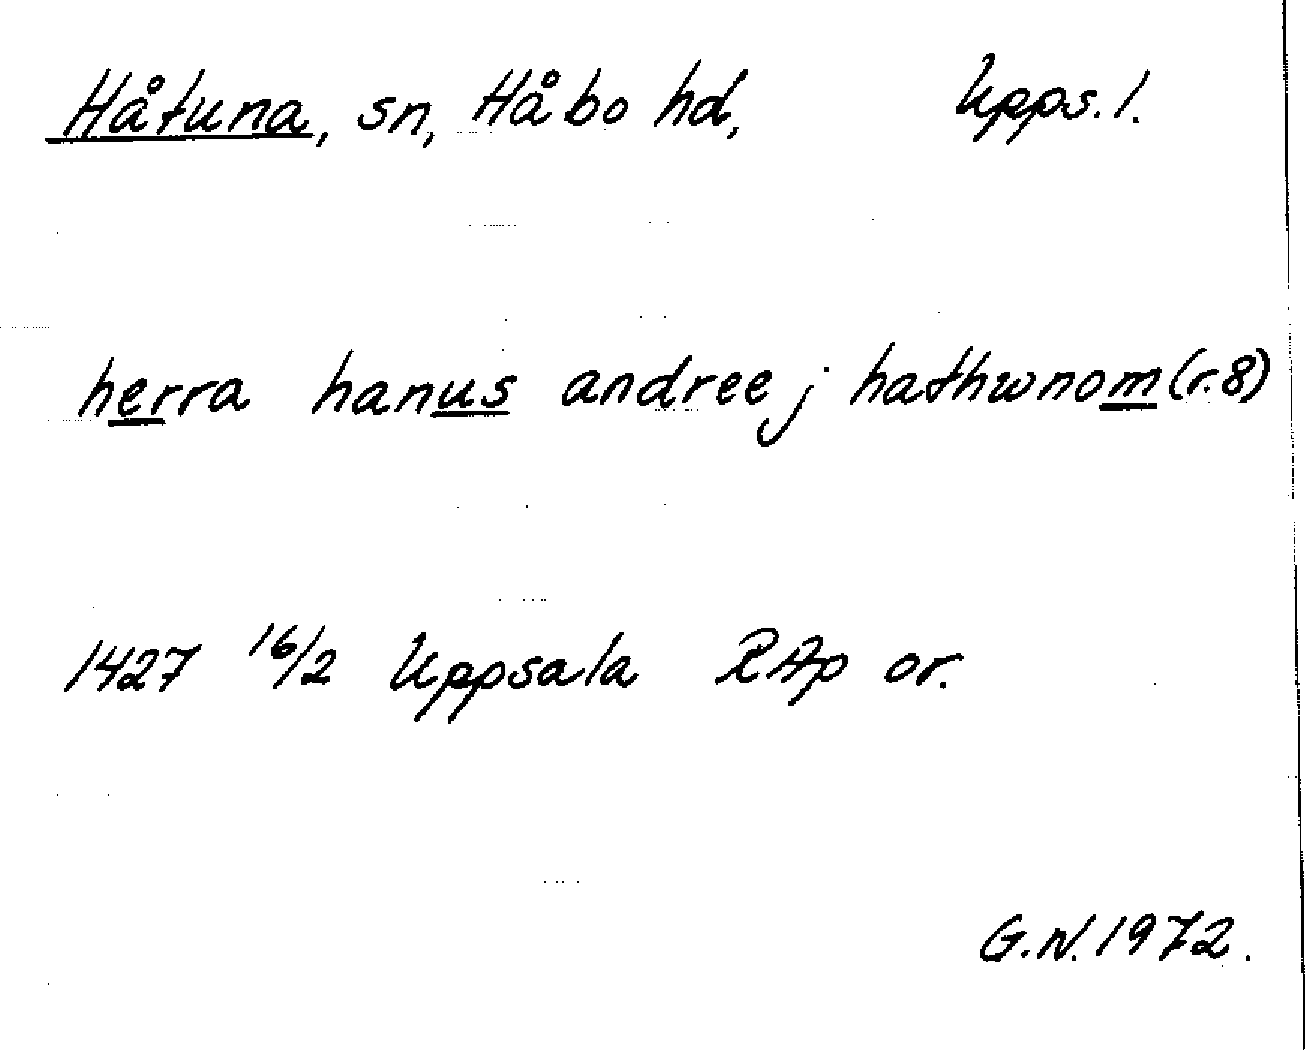 Håtuna, sn, Håbo hd, Upps. l.
herra hanus andree j hathwnom (r.8)
1427 16/2 Uppsala RAp or.
G.N. 1972.